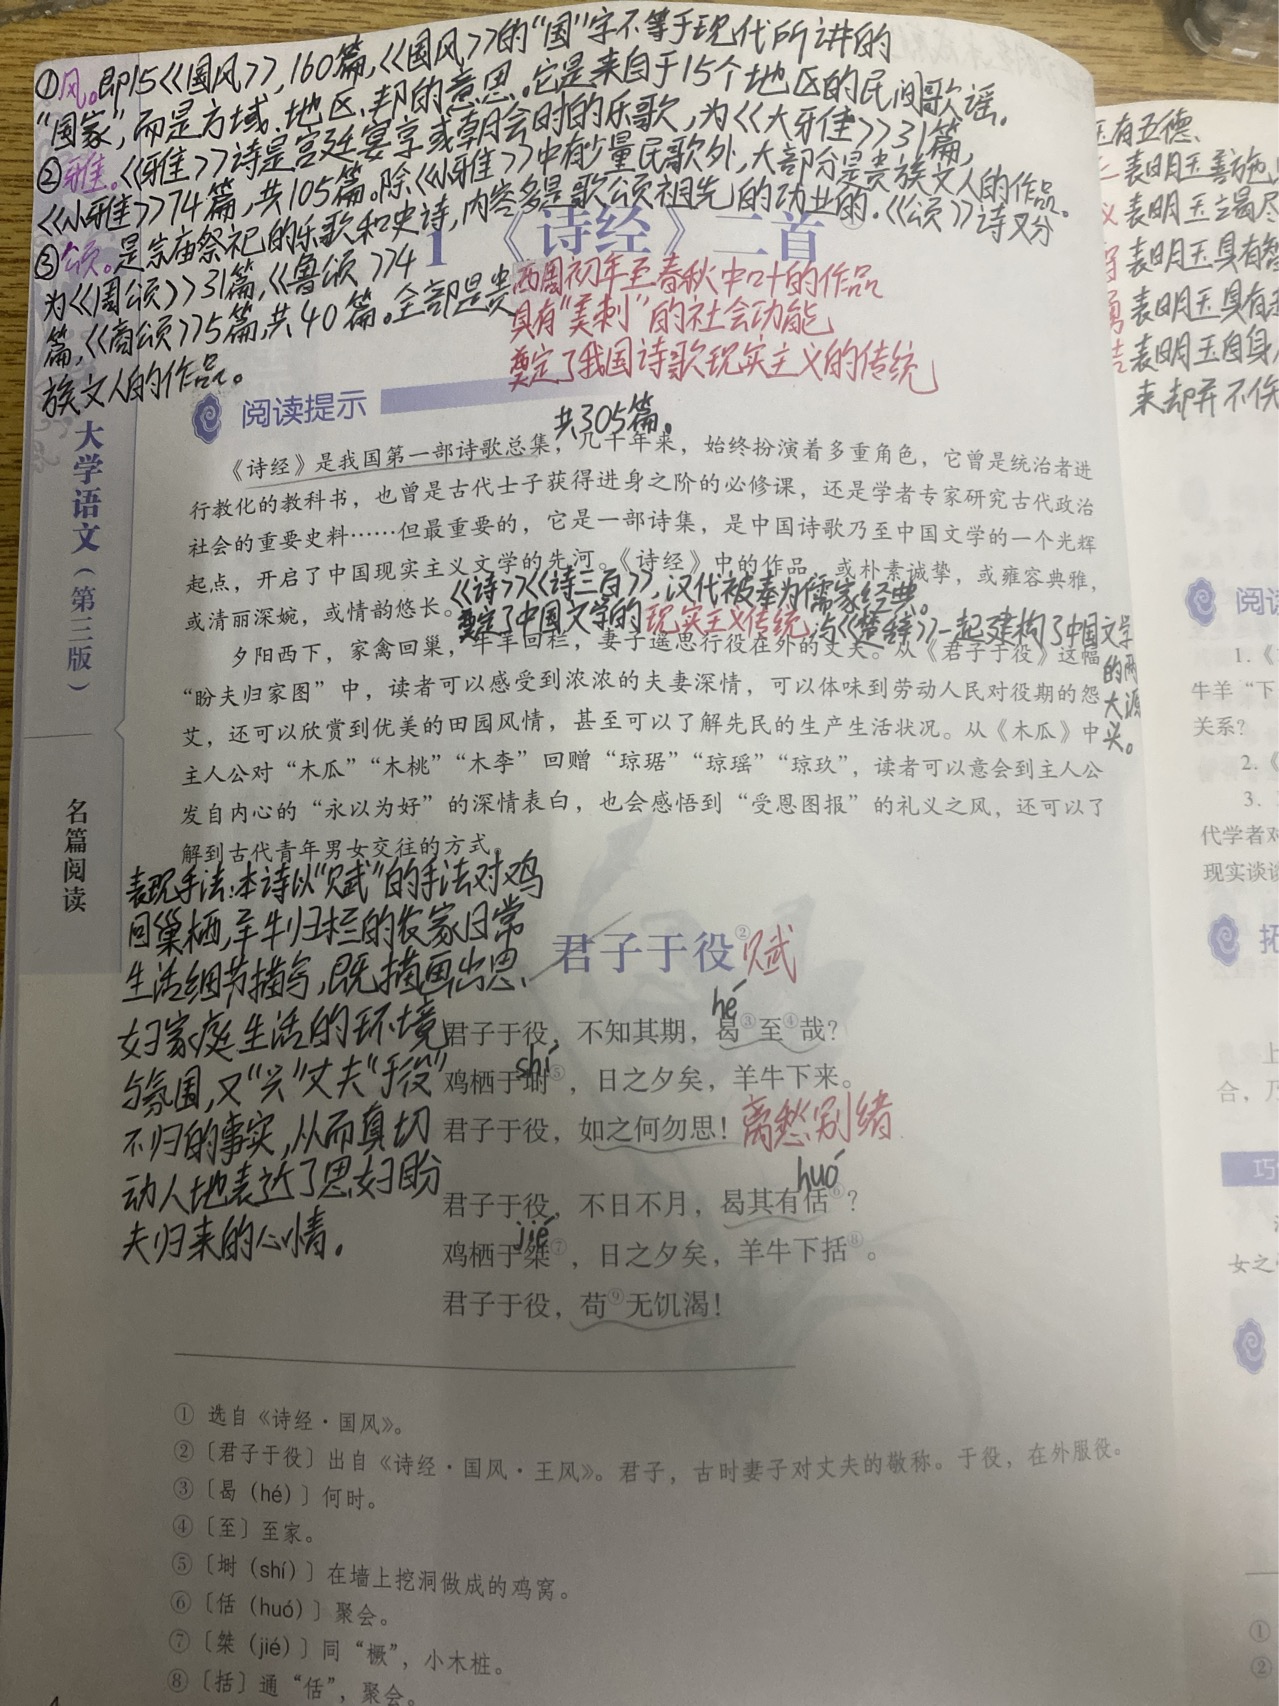 ①风。即15《国风》,160篇,《国风》的“国”字不等于现代所讲的
“国家”,而是方域、地区、邦的意思。它是来自于15个地区的民间歌谣。
②雅。《雅》诗是宫廷宴享或朝会时的乐歌,为《大雅》31篇,
《小雅》74篇,共105篇。除《小雅》中有少量民歌外,大部分是贵族文人的作品。
③颂。是宗庙祭祀的乐歌和史诗,内容多是歌颂祖先的功业的。《颂》诗又分
为《周颂》31篇,《鲁颂》4
篇,《商颂》5篇,共40篇。全部是贵
族文人的作品。
1 《诗经》二首①
西周初年至春秋中叶的作品
具有“美刺”的社会功能
奠定了我国诗歌现实主义的传统
阅读提示
共305篇。
《诗经》是我国第一部诗歌总集,几千年来,始终扮演着多重角色,它曾是统治者进
行教化的教科书,也曾是古代士子获得进身之阶的必修课,还是学者专家研究古代政治
社会的重要史料……但最重要的,它是一部诗集,是中国诗歌乃至中国文学的一个光辉
起点,开启了中国现实主义文学的先河。《诗经》中的作品,或朴素诚挚,或雍容典雅,
或清丽深婉,或情韵悠长。
《诗》《诗三百》,汉代被奉为儒家经典。
奠定了中国文学的现实主义传统,与《楚辞》一起建构了中国文学
的两
大源
头。
夕阳西下,家禽回巢,牛羊回栏,妻子遥思行役在外的丈夫。从《君子于役》这幅
“盼夫归家图”中,读者可以感受到浓浓的夫妻深情,可以体味到劳动人民对役期的怨
艾,还可以欣赏到优美的田园风情,甚至可以了解先民的生产生活状况。从《木瓜》中
主人公对“木瓜”“木桃”“木李”回赠“琼琚”“琼瑶”“琼玖”,读者可以意会到主人公
发自内心的“永以为好”的深情表白,也会感悟到“受恩图报”的礼义之风,还可以了
解到古代青年男女交往的方式。
表现手法:本诗以“赋”的手法对鸡
回巢栖,羊牛归栏的农家日常
生活细节描写,既描画出思
妇家庭生活的环境
与氛围,又“兴”丈夫“于役”
不归的事实,从而真切
动人地表达了思妇盼
夫归来的心情。
君子于役② 赋
hé
君子于役,不知其期,曷③至④哉?
shí
鸡栖于埘⑤,日之夕矣,羊牛下来。
君子于役,如之何勿思! 离愁别绪
huó
君子于役,不日不月,曷其有佸⑥?
jié
鸡栖于桀⑦,日之夕矣,羊牛下括⑧。
君子于役,苟⑨无饥渴!
① 选自《诗经·国风》。
② 〔君子于役〕出自《诗经·国风·王风》。君子,古时妻子对丈夫的敬称。于役,在外服役。
③ 〔曷(hé)〕何时。
④ 〔至〕至家。
⑤ 〔埘(shí)〕在墙上挖洞做成的鸡窝。
⑥ 〔佸(huó)〕聚会。
⑦ 〔桀(jié)〕同“橛”,小木桩。
⑧ 〔括〕通“佸”,聚会。
大学语文(第三版)
名篇阅读
玉有五德
表明玉善施
义 表明玉竭尽
表明玉具有智
勇 表明玉具有
洁 表明玉自身
来却并不伤
阅读
1.《
牛羊“下
关系?
2.《
3.
代学者对
现实谈谈
拓
上
合,乃
巧
女之
①
②